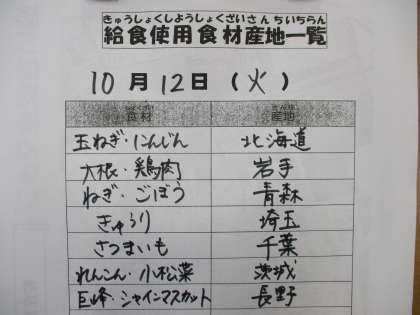 きゅうしょくしようしょくざいさんちいちらん
給食使用食材産地一覧
10月12日(火)
食材 産地
玉ねぎ・にんじん 北海道
大根・鶏肉 岩手
ねぎ・ごぼう 青森
きゅうり 埼玉
さつまいも 千葉
れんこん・小松菜 茨城
巨峰・シャインマスカット 長野